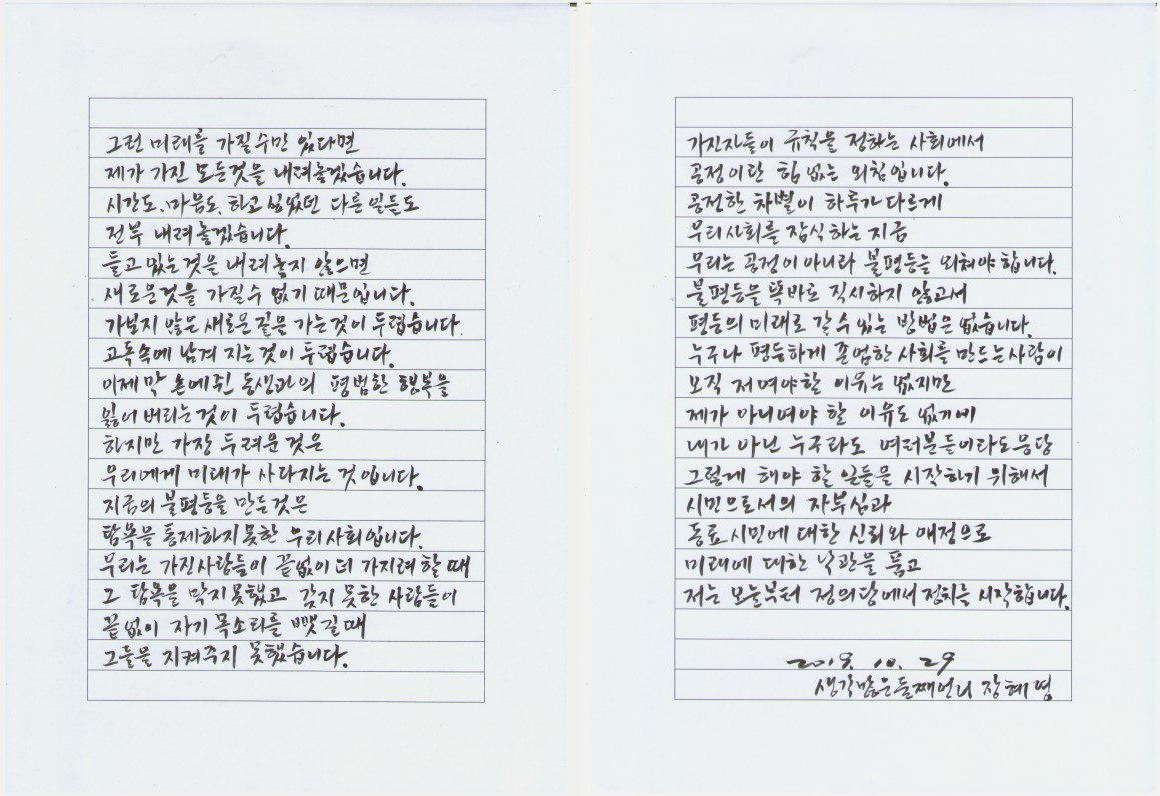 그런 미래를 가질 수만 있다면
제가 가진 모든것을 내려놓겠습니다.
시간도, 마음도, 하고 싶었던 다른 일들도
전부 내려놓겠습니다.
들고 있는 것을 내려놓지 않으면
새로운것을 가질수 없기 때문입니다.
가보지 않은 새로운 길을 가는것이 두렵습니다.
고독속에 남겨 지는것이 두렵습니다.
이제 막 손에 쥔 동생과의 평범한 행복을
잃어 버리는것이 두렵습니다.
하지만 가장 두려운 것은
우리에게 미래가 사라지는 것입니다.
지금의 불평등을 만든것은
탐욕을 통제하지 못한 우리 사회입니다.
우리는 가진 사람들이 끝없이 더 가지려 할 때
그 탐욕을 막지 못했고 갖지 못한 사람들이
끝없이 자기 목소리를 빼앗길 때
그들을 지켜주지 못했습니다.
가진자들이 규칙을 정하는 사회에서
공정이란 힘 없는 외침입니다.
공정한 차별이 하루가 다르게
우리사회를 잠식하는 지금
우리는 공정이 아니라 불평등을 외쳐야 합니다.
불평등을 똑바로 직시하지 않고서
평등의 미래로 갈 수 있는 방법은 없습니다.
누구나 평등하게 존엄한 사회를 만드는 사람이
오직 저여야할 이유는 없지만
제가 아니여야 할 이유도 없기에
내가 아닌 누구라도 여러분들이라도 응당
그렇게 해야 할 일들을 시작하기 위해서
시민으로서의 자부심과
동료 시민에 대한 신뢰와 애정으로
미래에 대한 낙관을 품고
저는 오늘부터 정의당에서 정치를 시작합니다.
2019. 10. 29
생각많은 둘째언니 장혜영